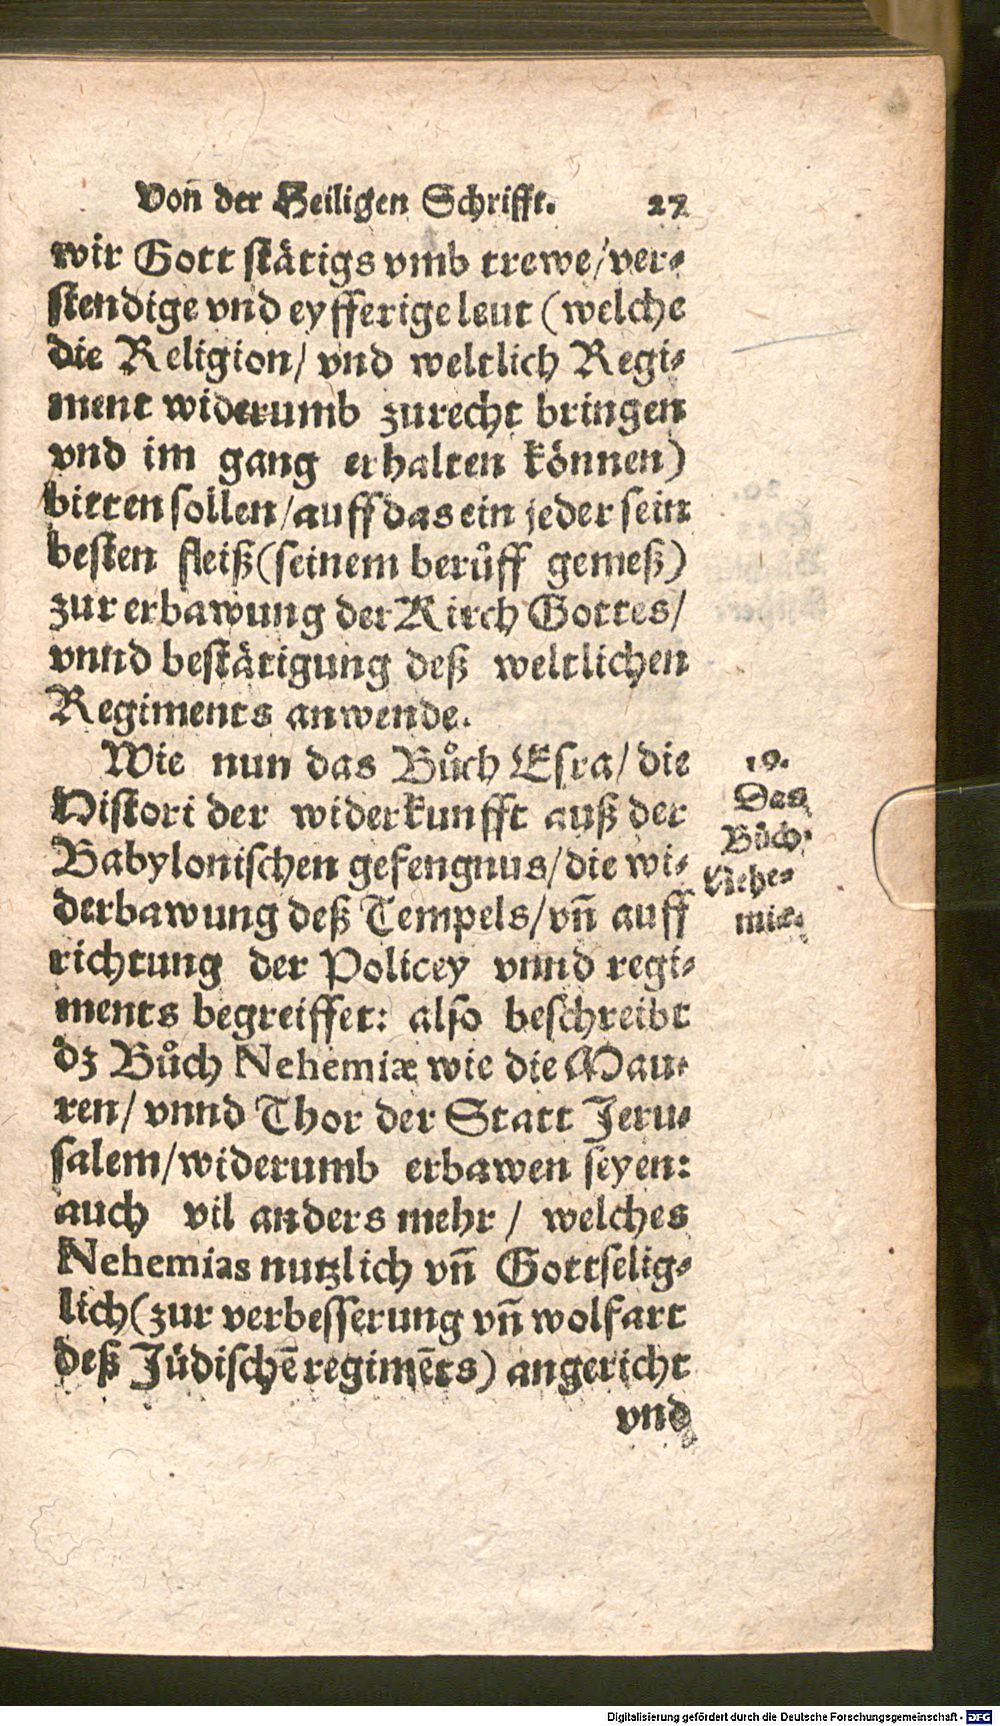 Von̄ der Heiligen Schrifft. 27
wir Gott stätigs vmb trewe/ver-
stendige vnd eyfferige leut (welche
die Religion/ vnd weltlich Regi-
ment widerumb zurecht bringen
vnd im gang erhalten können)
bitten sollen/auff das ein jeder sein
besten fleiß (seinem berůff gemeß)
zur erbawung der Kirch Gottes/
vnnd bestätigung deß weltlichen
Regiments anwende.
Wie nun das Bůch Esra/ die
Histori der widerkunfft auß der
Babylonischen gefengnus/die wi-
derbawung deß Tempels/vn̄ auff
richtung der Policey vnnd regi-
ments begreiffet: also beschreibt
dz Bůch Nehemiæ wie die Mau-
ren/ vnnd Thor der Statt Jeru-
salem/widerumb erbawen seyen:
auch vil anders mehr / welches
Nehemias nutzlich vn̄ Gottselig-
lich (zur verbesserung vn̄ wolfart
deß Jüdischē regimēts) angericht
vnd
19.
Das
Bůch
Nehe-
miæ.
Digitalisierung gefördert durch die Deutsche Forschungsgemeinschaft - DFG